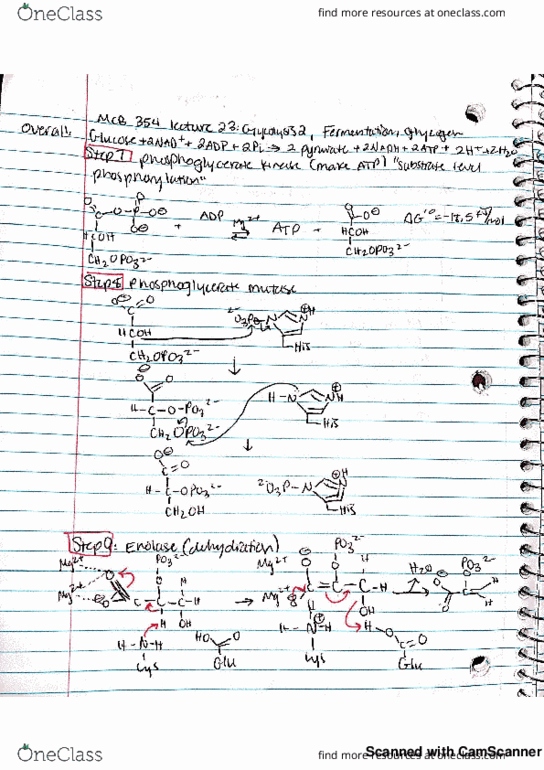 OneClass
find more resources at oneclass.com
MCB 354 lecture 23: Glycolysis 2, Fermentation, glycogen
Overall: Glucose + 2NAD+ + 2ADP + 2Pi → 2 pyruvate + 2NADH + 2ATP + 2H+ + 2H2O
Step 7 phosphoglycerate kinase (make ATP) "substrate level
phosphorylation"
ADP
Mg2+
ATP
HCOH
CH2OPO3 2-
HCOH
CH2OPO3 2-
Step 8 phosphoglycerate mutase
HCOH
CH2OPO3 2-
His
H-C-O-PO3 2-
CH2OPO3 2-
H-N
NH
His
H-C-OPO3 2-
CH2OH
2-O3P-N
His
Step 9: Enolase (dehydration)
Mg2+
Mg2+
PO3 2-
H
OH
H-N-H
Lys
HO
Glu
Mg2+
Mg2+
PO3 2-
H
C-H
OH
H
Lys
Glu
H2O
PO3 2-
OneClass
find more resources at oneclass.com
Scanned with CamScanner